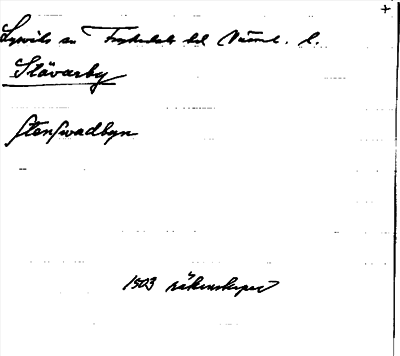 Lysviks sn Fryksdals hd Värml. l.
Stävarby
Stensvadbyn
1503 räkenskaper